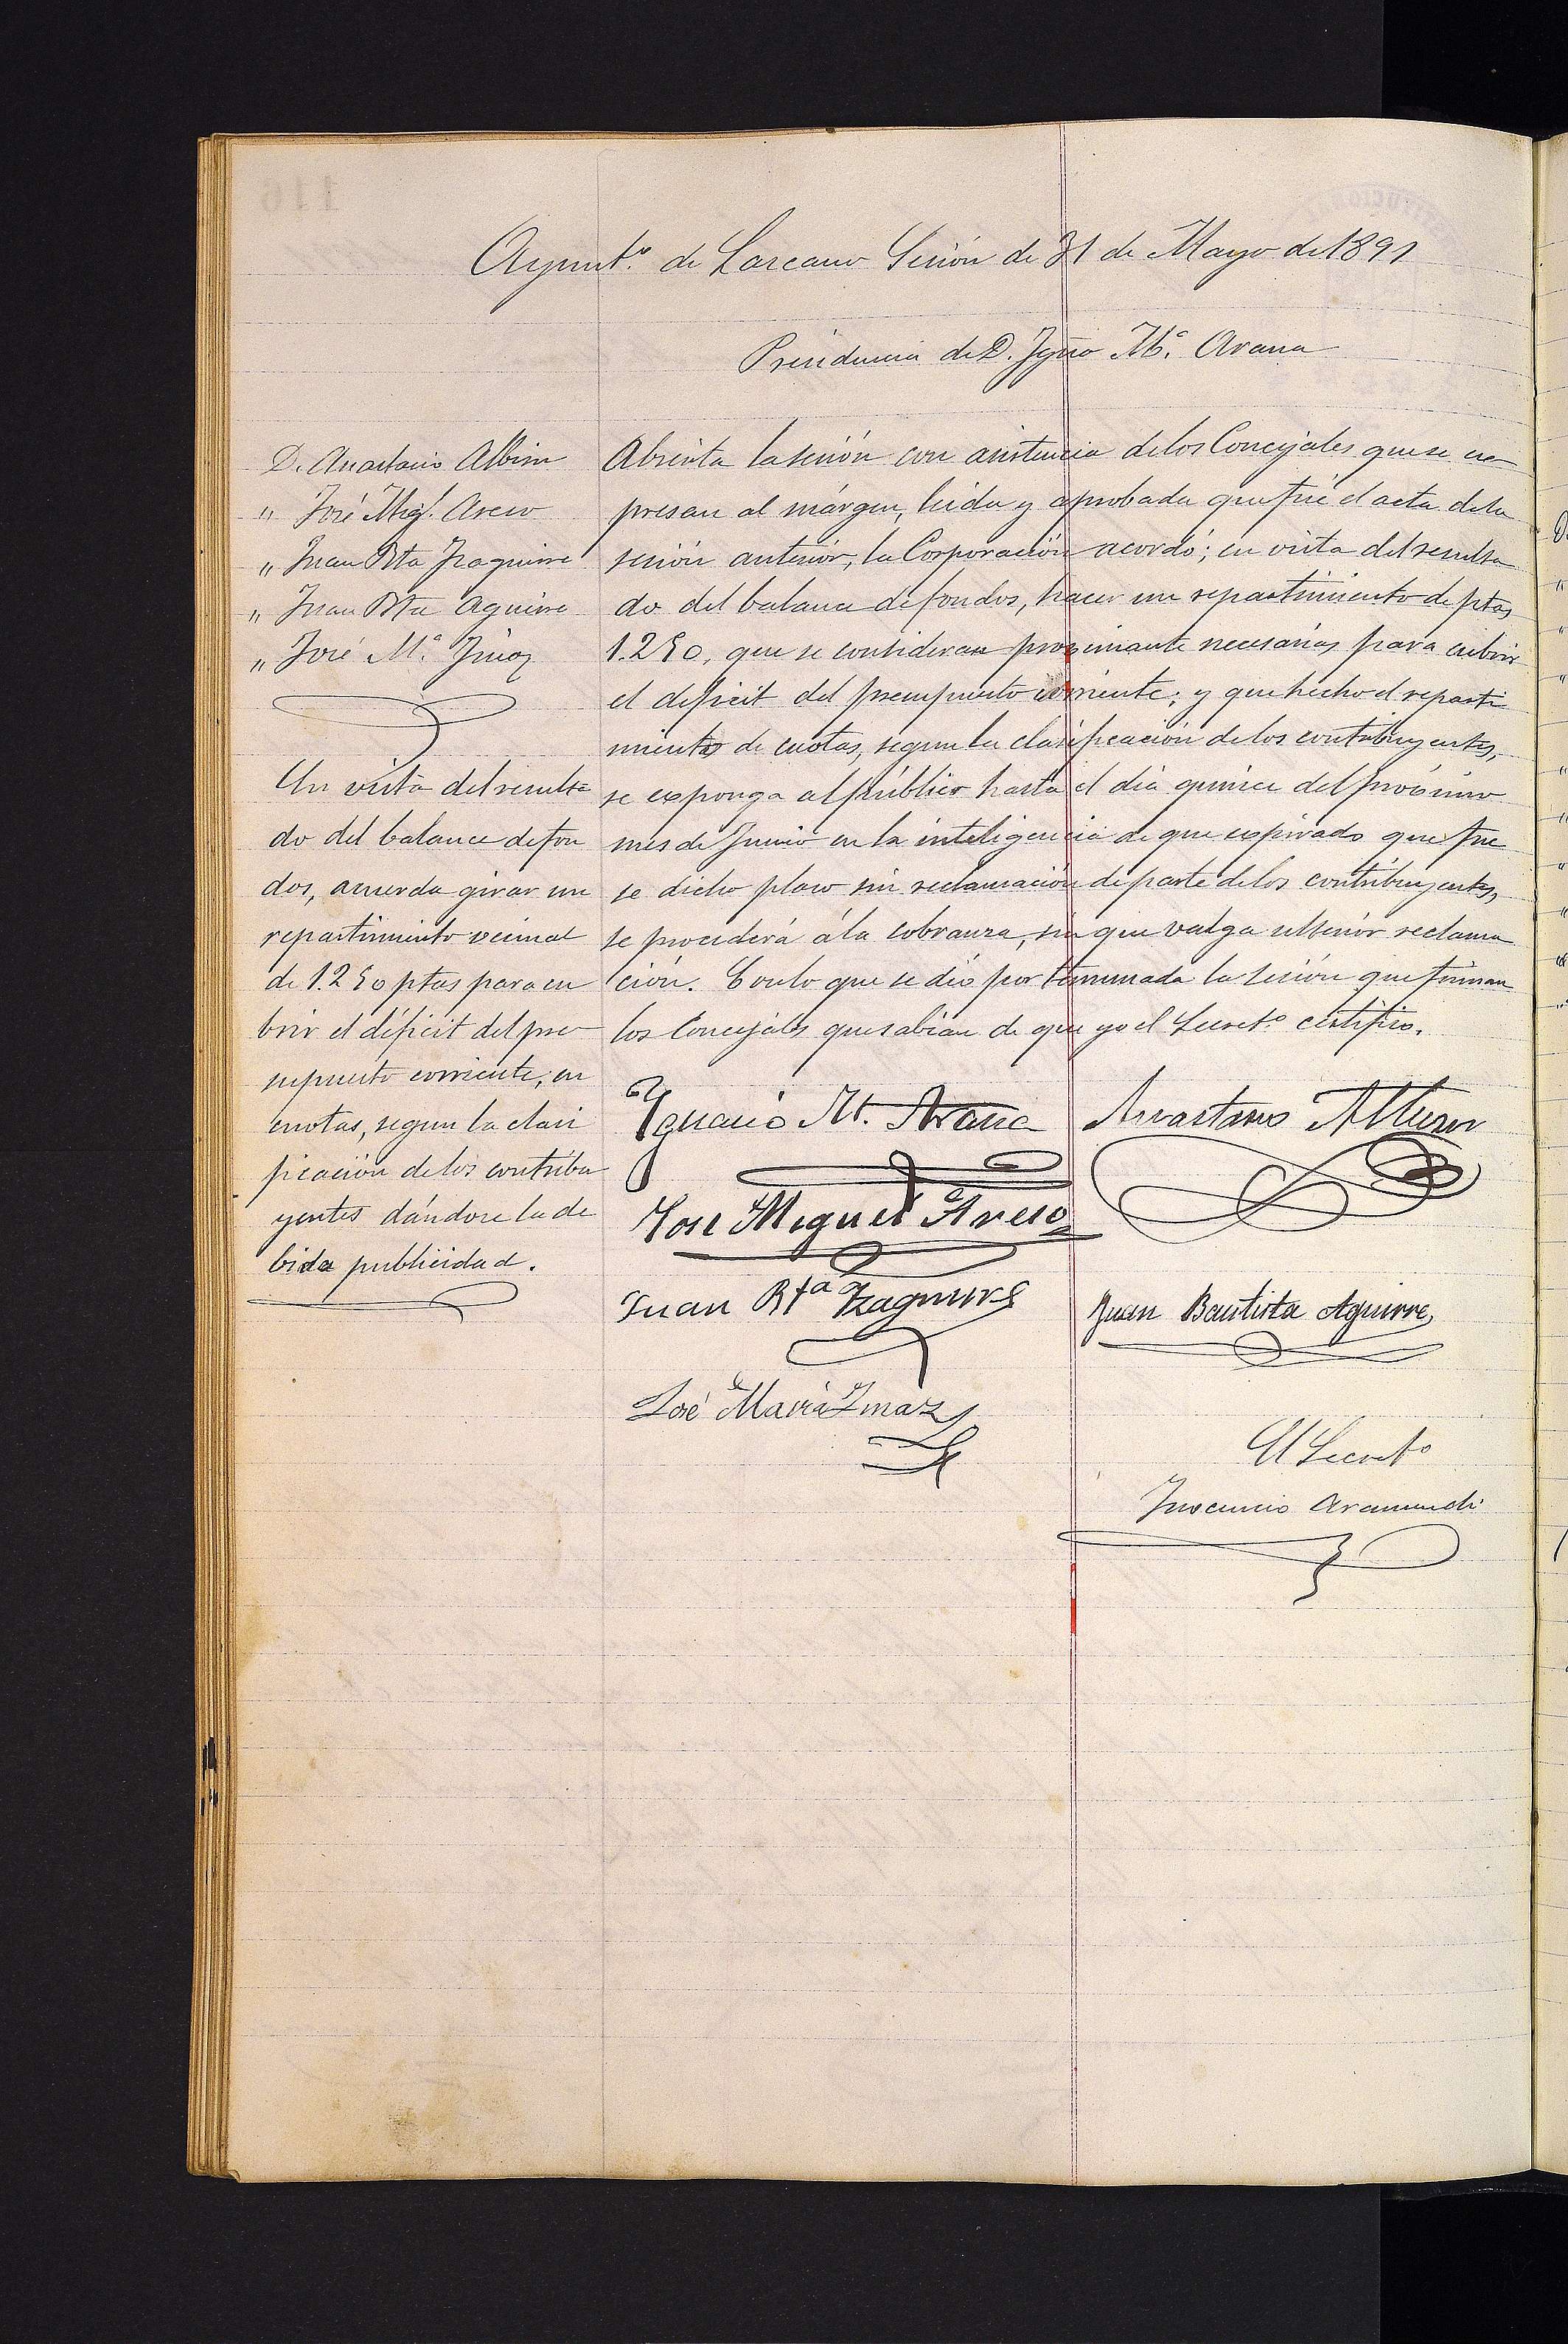 Ayunt.º de Lazcano Sesión de 31 de Mayo de 1891
Presidencia de D. Ygnº M.ª Arana
D. Anastasio Albisu
" José Mig.l Areso
" Juan Bta Yzaguirre
" Juan Bta Aguirre
" José M.ª Ymaz
En vista del resulta
do del balance de fon
dos, acuerda girar un
repartimiento vecinal
de 1.250 ptas para cu
brir el déficit del pre
supuesto corriente, en
cuotas, segun la clasi
ficación de los contribu
yentes dándose la de
bida publicidad.
Abierta la sesión con asistencia de los Concejales que se ex
presan al márgen, leida y aprobada que fué el acta de la
sesión anterior, la Corporación acordó; en vista del resulta
do del balance de fondos, hacer un repartimiento de ptas
1.250, que se consideran proximante necesarias para cubrir
el deficit del presupuesto corriente; y que hecho el reparti
miento de cuotas, segun la clasificación de los contribuyentes,
se exponga al público hasta el dia quince del próximo
mes de Junio en la inteligencia de que expirado que fue
se dicho plazo sin reclamación de parte de los contribuyentes,
se procederá á la cobranza, sin que valga ulterior reclama
ción. Con lo que se dió por terminada la sesión que firman
los Concejales que sabian de que yo el Secret.º certifico.
Ygnacio M. Arana
Anastasio Albisu
Jose Miguel Areso
Juan Bta Yzaguirre
Juan Bautista Aguirre
José Maria Ymaz
El Secretº
Inocencio Aramendi